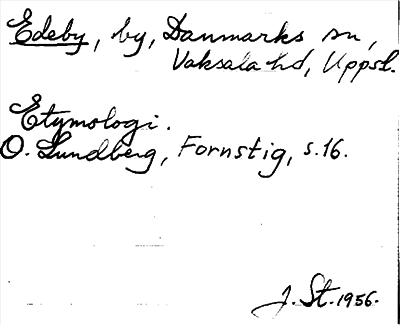 Edeby, by, Danmarks sn,
Vaksala hd, Uppsl.
Etymologi.
O. Lundberg, Fornstig, s.16.
J. St. 1956.